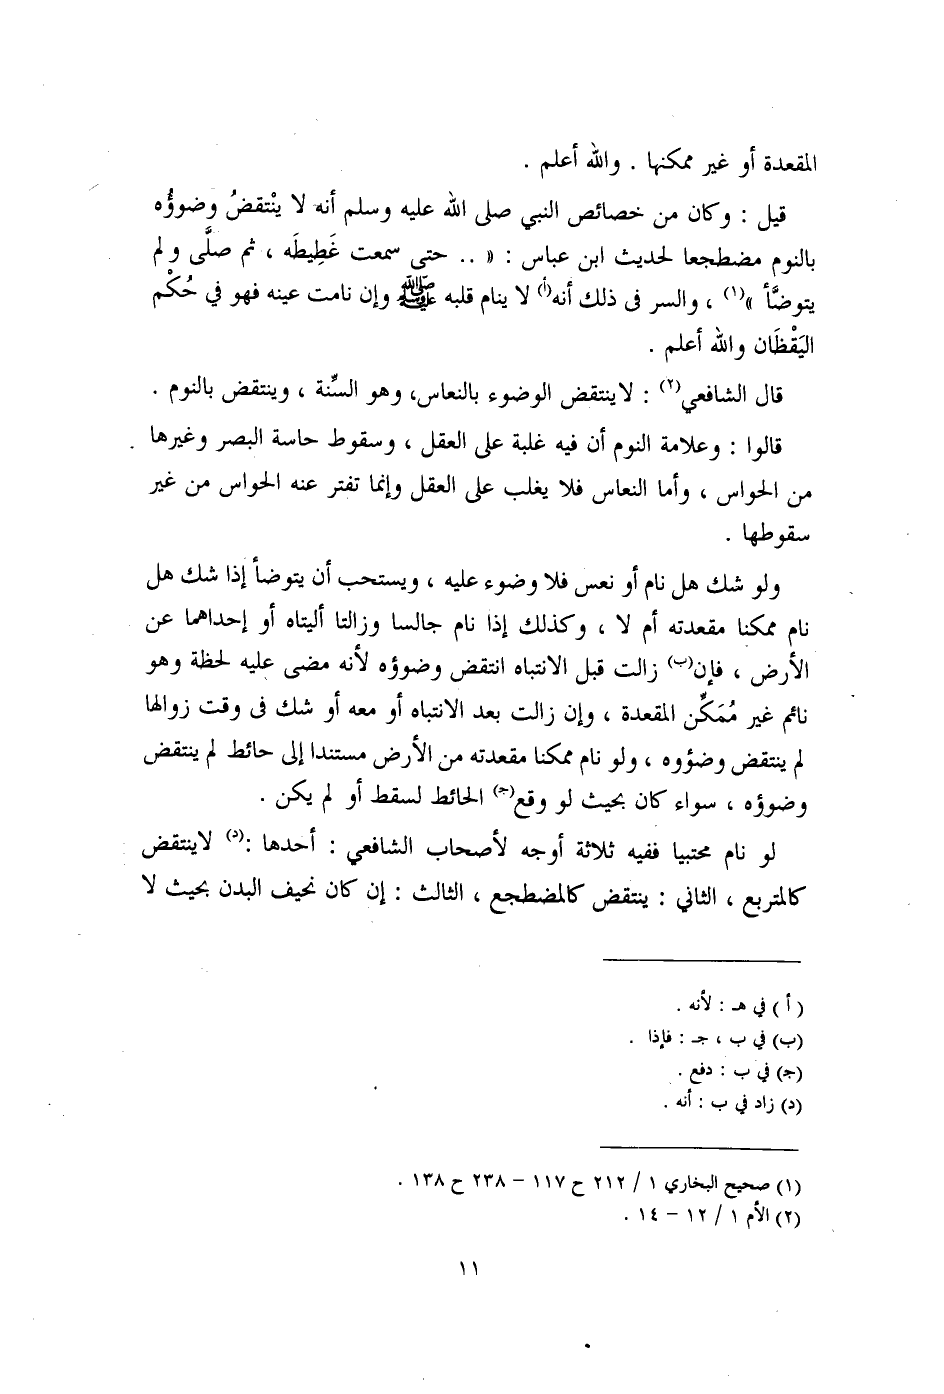 المقعدة أو غير ممكنها . والله أعلم .
قيل : وكان من خصائص النبي صلى الله عليه وسلم أنه لا ينْتقضُ وضوؤُه
بالنوم مضطجعا لحديث ابن عباس : « .. حتى سمعت غَطِيطَه ، ثم صلَّى ولم
يتوضَّأ »(١) ، والسر فى ذلك أنه(أ) لا ينام قلبه ﷺ وإن نامت عينه فهو في حُكْم
اليَقْظَان والله أعلم .
قال الشافعي(٢) : لاينتقض الوضوء بالنعاس، وهو السِّنة ، وينتقض بالنوم .
قالوا : وعلامة النوم أن فيه غلبة على العقل ، وسقوط حاسة البصر وغيرها
من الحواس ، وأما النعاس فلا يغلب على العقل وإنما تفتر عنه الحواس من غير
سقوطها .
ولو شك هل نام أو نعس فلا وضوء عليه ، ويستحب أن يتوضأ إذا شك هل
نام ممكنا مقعدته أم لا ، وكذلك إذا نام جالسا وزالتا أليتاه أو إحداهما عن
الأرض ، فإن(ب) زالت قبل الانتباه انتقض وضوؤه لأنه مضى عليه لحظة وهو
نائم غير مُمَكِّن المقعدة ، وإن زالت بعد الانتباه أو معه أو شك فى وقت زوالها
لم ينتقض وضؤوه ، ولو نام ممكنا مقعدته من الأرض مستندا إلى حائط لم ينتقض
وضوؤه ، سواء كان بحيث لو وقع(جـ) الحائط لسقط أو لم يكن .
لو نام محتبيا ففيه ثلاثة أوجه لأصحاب الشافعي : أحدها :(د) لاينتقض
كالمتربع ، الثاني : ينتقض كالمضطجع ، الثالث : إن كان نحيف البدن بحيث لا
(أ) في هـ : لأنه .
(ب) في ب ، جـ : فإذا .
(جـ) في ب : دفع .
(د) زاد في ب : أنه .
(١) صحيح البخاري ١ / ٢١٢ ح ١١٧ – ٢٣٨ ح ١٣٨ .
(٢) الأم ١ / ١٢ – ١٤ .
١١